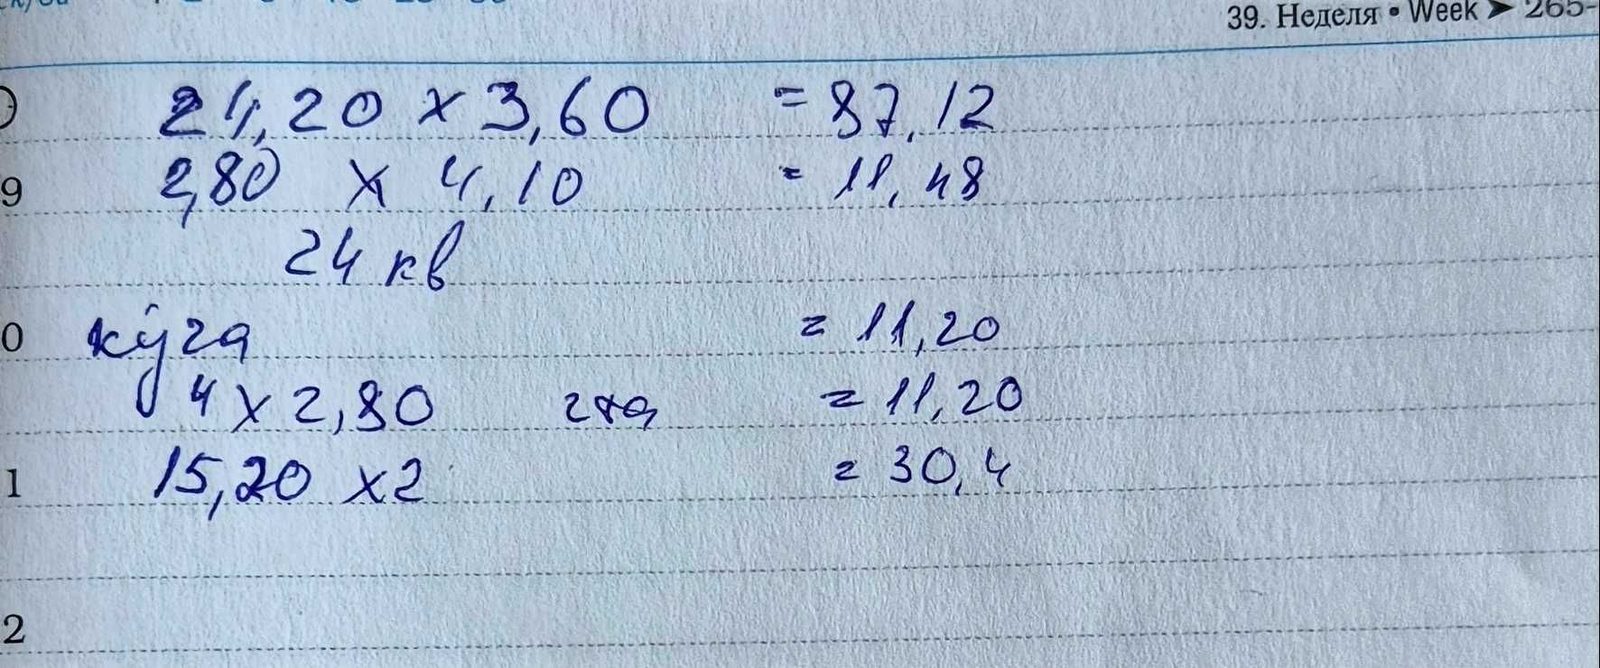 39. Неделя • Week ➤ 265-
24,20 x 3,60 = 87,12
9 2,80 x 4,10 = 11,48
24 кв
0 = 11,20
4 x 2,80 = 11,20
1 15,20 x 2 = 30,4
2